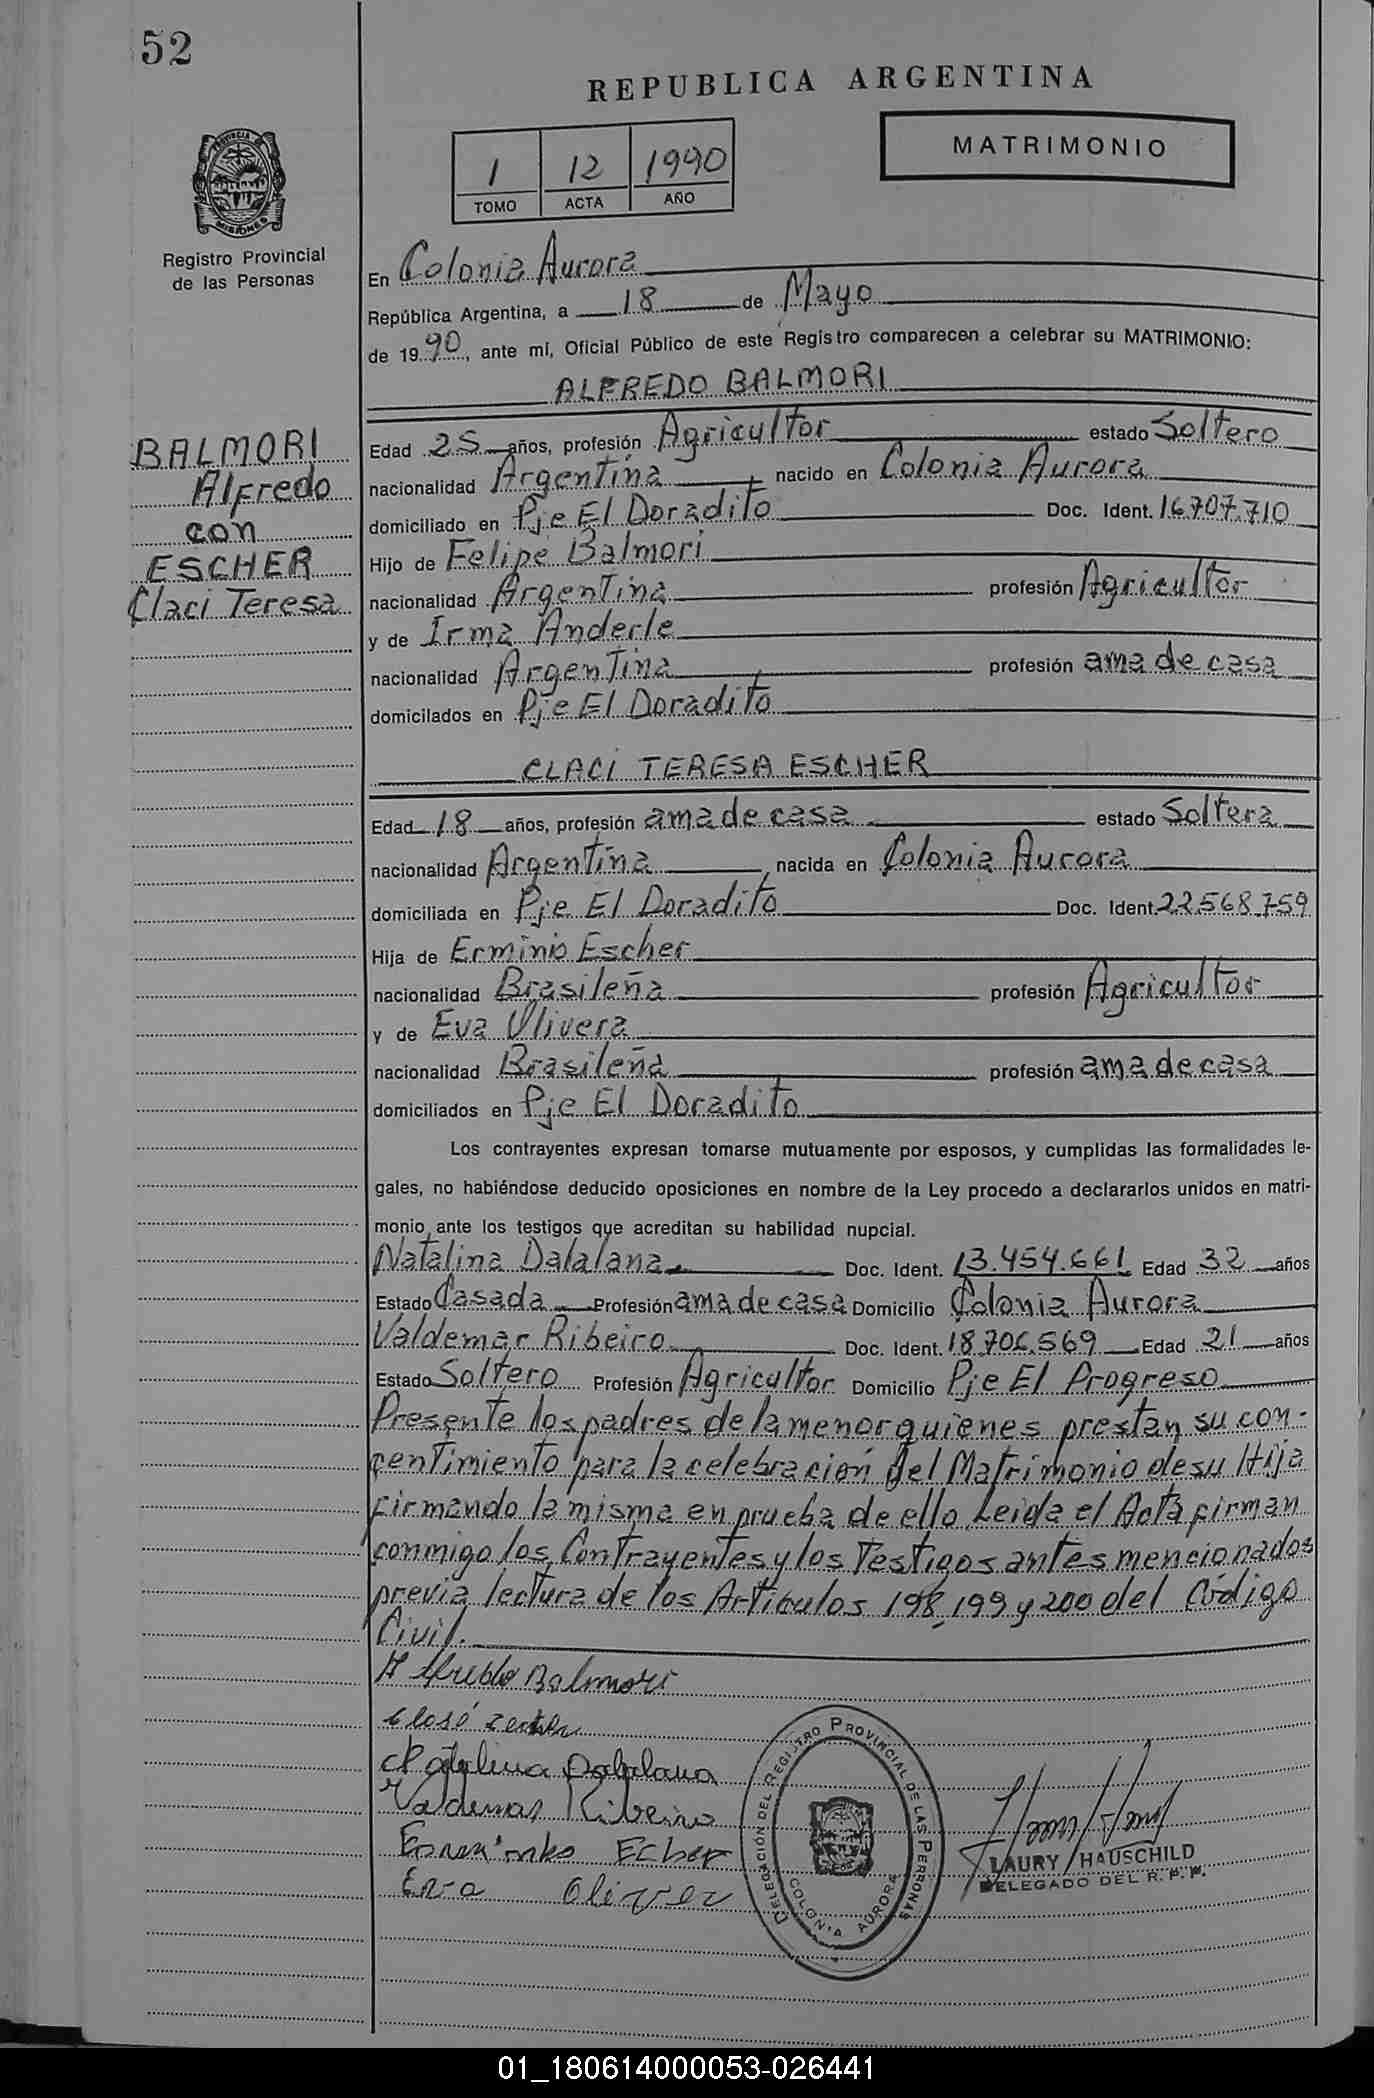 52
REPUBLICA ARGENTINA
MATRIMONIO
1 12 1990
TOMO ACTA AÑO
PROVINCIA DE
MISIONES
Registro Provincial
de las Personas
En Colonia Aurora
República Argentina, a 18 de Mayo
de 1990, ante mí, Oficial Público de este Registro comparecen a celebrar su MATRIMONIO:
ALFREDO BALMORI
BALMORI
Alfredo
con
ESCHER
Claci Teresa
Edad 25 años, profesión Agricultor estado Soltero
nacionalidad Argentina, nacido en Colonia Aurora
domiciliado en Pje El Doradito Doc. Ident. 16.707.710
Hijo de Felipe Balmori
nacionalidad Argentina profesión Agricultor
y de Irma Anderle
nacionalidad Argentina profesión ama de casa
domicilados en Pje El Doradito
CLACI TERESA ESCHER
Edad 18 años, profesión ama de casa estado Soltera
nacionalidad Argentina, nacida en Colonia Aurora
domiciliada en Pje El Doradito Doc. Ident. 22.568.759
Hija de Erminio Escher
nacionalidad Brasileña profesión Agricultor
y de Eva Ulivera
nacionalidad Brasileña profesión ama de casa
domiciliados en Pje El Doradito
Los contrayentes expresan tomarse mutuamente por esposos, y cumplidas las formalidades le-
gales, no habiéndose deducido oposiciones en nombre de la Ley procedo a declararlos unidos en matri-
monio ante los testigos que acreditan su habilidad nupcial.
Natalina Dalalana Doc. Ident. 13.454.661 Edad 32 años
Estado Casada Profesión ama de casa Domicilio Colonia Aurora
Valdemar Ribeiro Doc. Ident. 18.706.569 Edad 21 años
Estado Soltero Profesión Agricultor Domicilio Pje El Progreso
Presente los padres de la menor quienes prestan su con-
centimiento para la celebración del Matrimonio de su Hija
firmando la misma en prueba de ello. Leida el Acta firman
conmigo los Contrayentes y los Testigos antes mencionados
previa lectura de los Articulos 198, 199 y 200 del Código
Civil.
Alfredo Balmori
Natalina Dalalana
Valdemar Ribeiro
Echer
Eva
DELEGACIÓN DEL REGISTRO PROVINCIAL DE LAS PERSONAS
COLONIA AURORA
LAURY HAUSCHILD
DELEGADO DEL R. P. P.
01_180614000053-026441